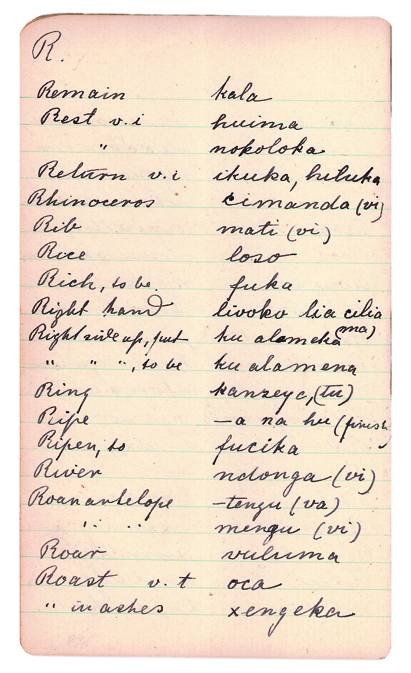 R.
Remain kala
Rest v.i huima
" nokoloka
Return v.i ikuka, hiluka
Rhinoceros cimanda (vi)
Rib mati (vi)
Rice loso
Rich, to be. fuka
Right hand livoko lia cilia
Right side up, put ku alameka (ma)
" " ", to be ku alamena
Ring kanzeya, (tu)
Ripe —a na hu (finish)
Ripen, to fucika
River ndonga (vi)
Roan antelope —tengu (va)
" " mengu (vi)
Roar vuluma
Roast v.t oca
" in ashes xengeka